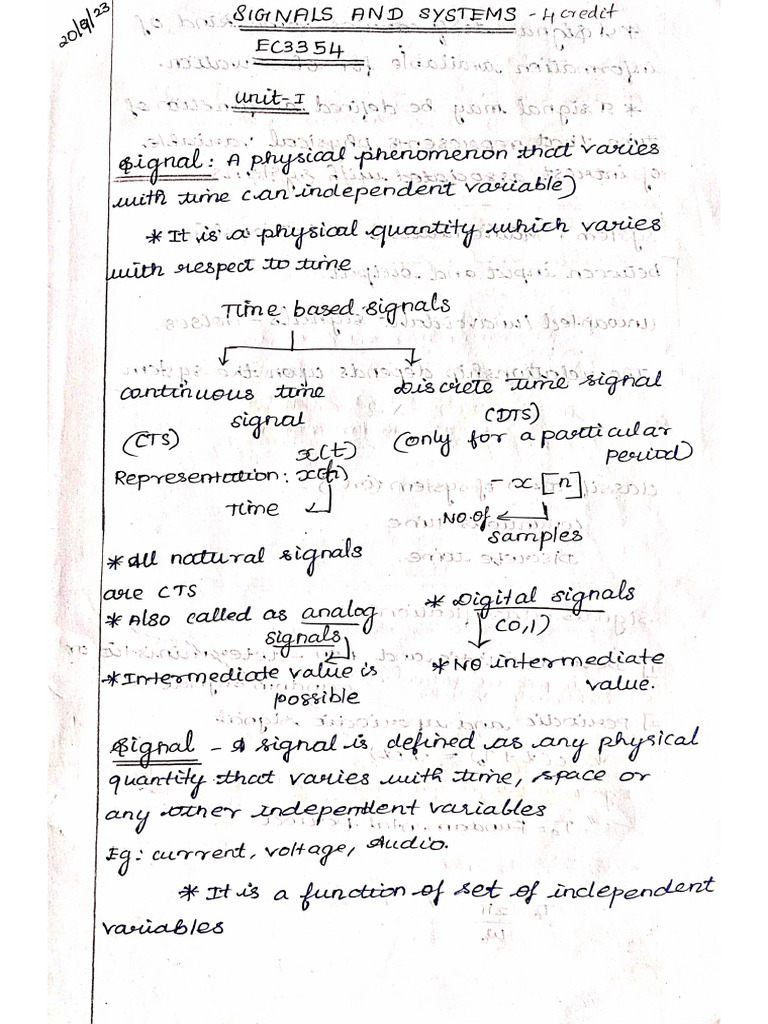 20/9/23
SIGNALS AND SYSTEMS - 4 credit
EC3354
Unit-I
Signal: A physical phenomenon that varies
with time (an independent variable)
* It is a physical quantity which varies
with respect to time
Time based signals
continuous time signal (CTS)
Discrete time signal (DTS)
(only for a particular period)
x(t)
Representation: x(t)
Time
- x[n]
No. of samples
* All natural signals
are CTS
* Also called as analog
signals
* Intermediate value is
possible
* Digital signals
(0,1)
* No intermediate
value.
Signal - A signal is defined as any physical
quantity that varies with time, space or
any other independent variables
Eg: current, voltage, Audio.
* It is a function of set of independent
variables